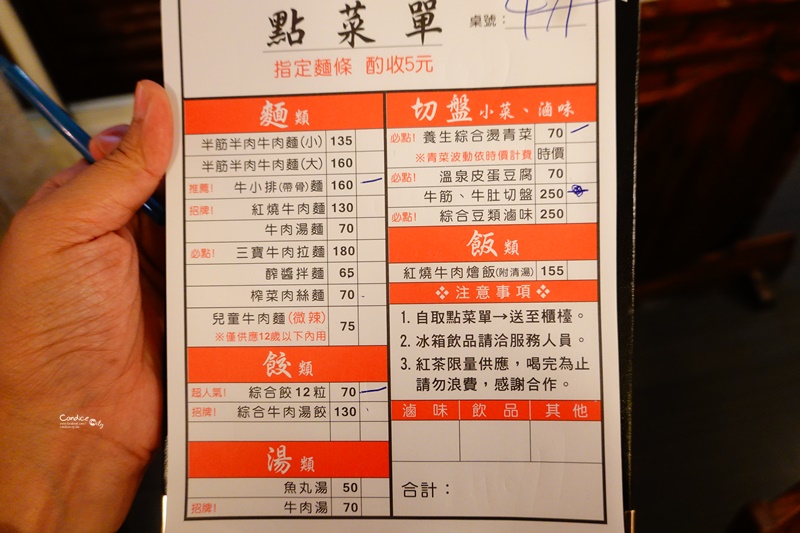 點菜單
桌號：
指定麵條 酌收5元
麵類
半筋半肉牛肉麵(小) 135
半筋半肉牛肉麵(大) 160
推薦! 牛小排(帶骨)麵 160
招牌! 紅燒牛肉麵 130
牛肉湯麵 70
必點! 三寶牛肉拉麵 180
醡醬拌麵 65
榨菜肉絲麵 70
兒童牛肉麵(微辣) 75
※僅供應12歲以下內用
餃類
超人氣! 綜合餃12粒 70
招牌! 綜合牛肉湯餃 130
湯類
魚丸湯 50
招牌! 牛肉湯 70
切盤 小菜、滷味
必點! 養生綜合燙青菜 70
※青菜波動依時價計費 時價
必點! 溫泉皮蛋豆腐 70
牛筋、牛肚切盤 250
必點! 綜合豆類滷味 250
飯類
紅燒牛肉燴飯(附清湯) 155
❖ 注意事項 ❖
1. 自取點菜單→送至櫃檯。
2. 冰箱飲品請洽服務人員。
3. 紅茶限量供應，喝完為止
請勿浪費，感謝合作。
滷味 飲品 其他
合計：
Candice